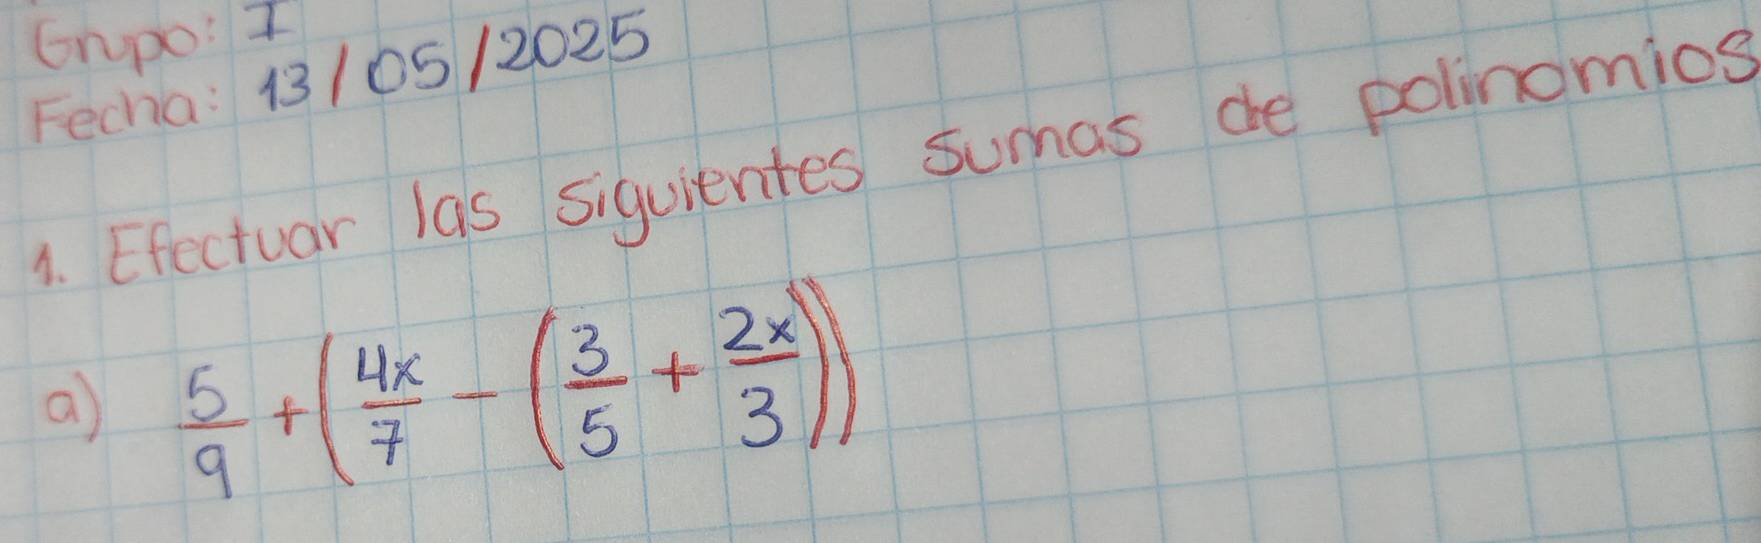 Grupo: I
Fecha: 13/05/2025
1. Efectuar las siguientes sumas de polinomios
a) 5/9 + (4x/7 - (3/5 + 2x/3))